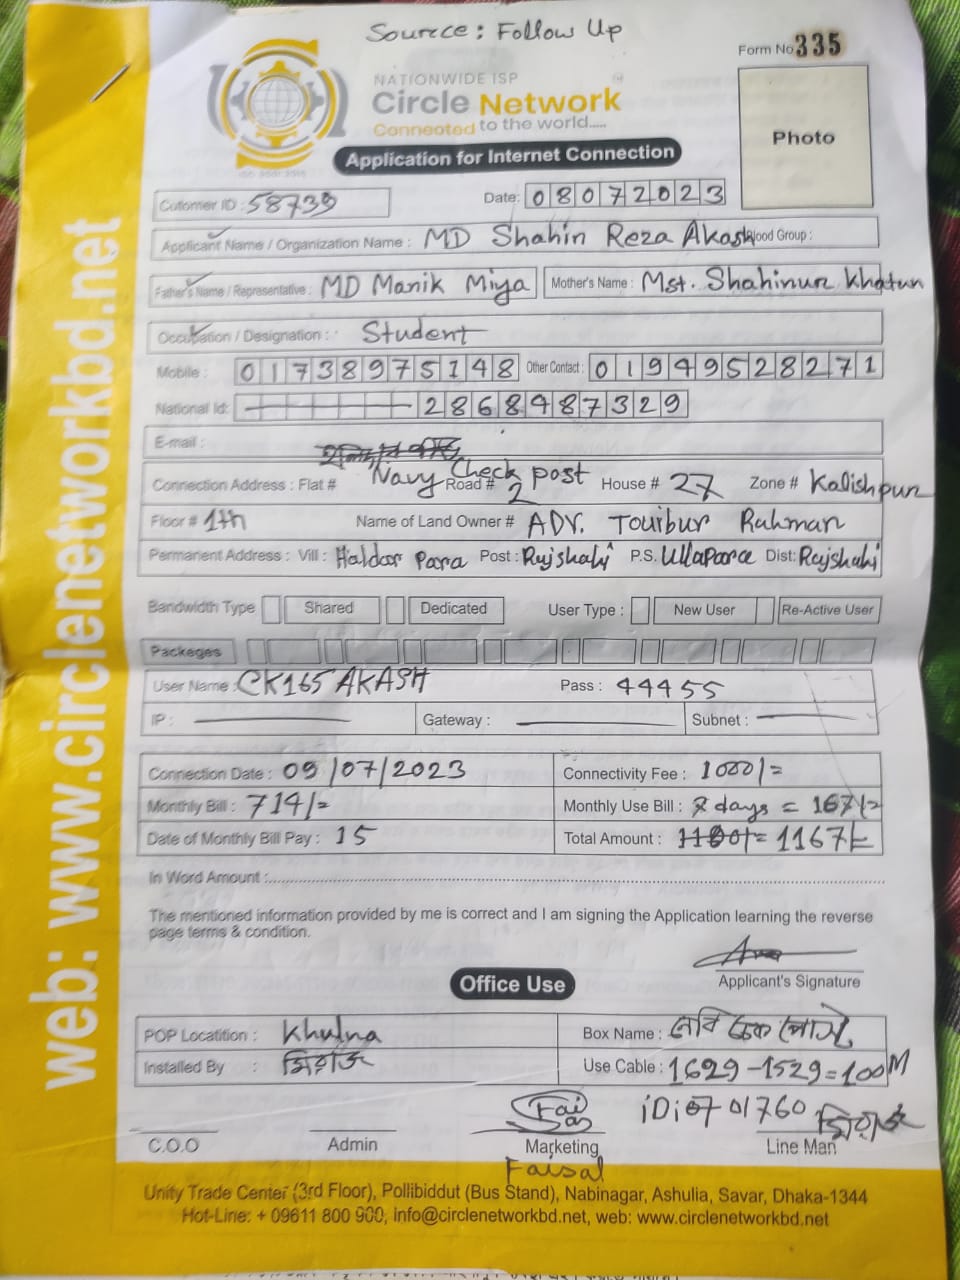 Source: Follow Up
Form No 335
NATIONWIDE ISP
Circle Network
Connected to the world.....
Photo
Application for Internet Connection
Cutomer ID : 58739
Date: 08072023
Applicant Name / Organization Name : MD Shahin Reza Akash Blood Group :
Father's Name / Representative : MD Manik Miya Mother's Name : Mst. Shahinur Khatun
Occupation / Designation : Student
Mobile : 01738975148 Other Contact : 01949528271
National Id: 2868487329
E-mail :
Connection Address : Flat # Navy Check post Road # 2 House # 27 Zone # Kalishpur
Floor # 1th Name of Land Owner # ADV. Touibur Rahman
Permanent Address : Vill : Haldar Para Post : Rajshahi P.S. Ullapara Dist: Rajshahi
Bandwidth Type Shared Dedicated User Type : New User Re-Active User
Packeges
User Name : CK165AKASH Pass : 44455
IP : Gateway : Subnet :
Connection Date : 09/07/2023 Connectivity Fee : 1000/=
Monthly Bill : 714/= Monthly Use Bill : 7 days = 167/=
Date of Monthly Bill Pay : 15 Total Amount : 1167/=
In Word Amount :
The mentioned information provided by me is correct and I am signing the Application learning the reverse
page terms & condition.
Applicant's Signature
Office Use
POP Locatition : Khulna Box Name : নেবি চেক পোস্ট
Installed By : মিরাজ Use Cable : 1629-1529=100M
Faisal iD: 0701760 মিরাজ
C.O.O Admin Marketing Line Man
Faisal
Unity Trade Center (3rd Floor), Pollibiddut (Bus Stand), Nabinagar, Ashulia, Savar, Dhaka-1344
Hot-Line: + 09611 800 900, info@circlenetworkbd.net, web: www.circlenetworkbd.net
web: www.circlenetworkbd.net